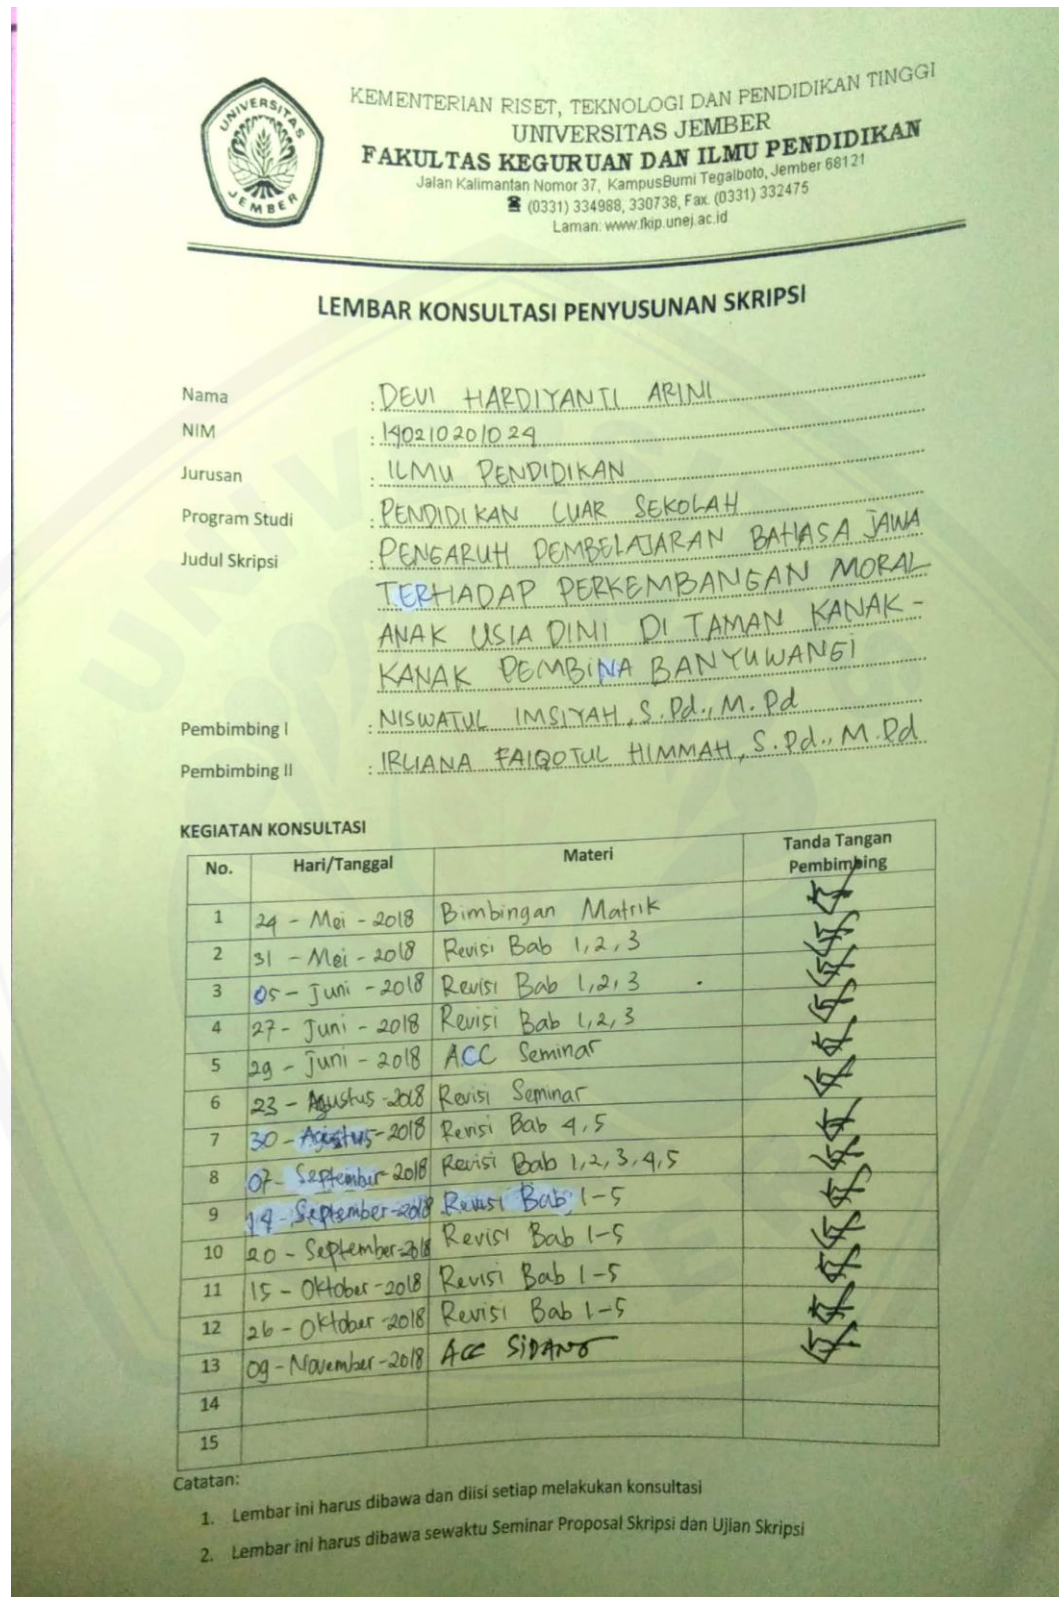 UNIVERSITAS
JEMBER
KEMENTERIAN RISET, TEKNOLOGI DAN PENDIDIKAN TINGGI
UNIVERSITAS JEMBER
FAKULTAS KEGURUAN DAN ILMU PENDIDIKAN
Jalan Kalimantan Nomor 37, KampusBumi Tegalboto, Jember 68121
☎ (0331) 334988, 330738, Fax. (0331) 332475
Laman: www.fkip.unej.ac.id
LEMBAR KONSULTASI PENYUSUNAN SKRIPSI
Nama : DEVI HARDIYANTI ARINI
NIM : 140210201024
Jurusan : ILMU PENDIDIKAN
Program Studi : PENDIDIKAN LUAR SEKOLAH
Judul Skripsi : PENGARUH PEMBELAJARAN BAHASA JAWA
TERHADAP PERKEMBANGAN MORAL
ANAK USIA DINI DI TAMAN KANAK-
KANAK PEMBINA BANYUWANGI
Pembimbing I : NISWATUL IMSIYAH, S.Pd., M.Pd
Pembimbing II : IRLIANA FAIQOTUL HIMMAH, S.Pd., M.Pd
KEGIATAN KONSULTASI
No. Hari/Tanggal Materi Tanda Tangan
Pembimbing
1 24 - Mei - 2018 Bimbingan Matrik
2 31 - Mei - 2018 Revisi Bab 1,2,3
3 05 - Juni - 2018 Revisi Bab 1,2,3
4 27 - Juni - 2018 Revisi Bab 1,2,3
5 29 - Juni - 2018 ACC Seminar
6 23 - Agustus - 2018 Revisi Seminar
7 30 - Agustus - 2018 Revisi Bab 4,5
8 07 - September - 2018 Revisi Bab 1,2,3,4,5
9 14 - September - 2018 Revisi Bab 1-5
10 20 - September - 2018 Revisi Bab 1-5
11 15 - Oktober - 2018 Revisi Bab 1-5
12 26 - Oktober - 2018 Revisi Bab 1-5
13 09 - November - 2018 ACC SIDANG
14
15
Catatan:
1. Lembar ini harus dibawa dan diisi setiap melakukan konsultasi
2. Lembar ini harus dibawa sewaktu Seminar Proposal Skripsi dan Ujian Skripsi